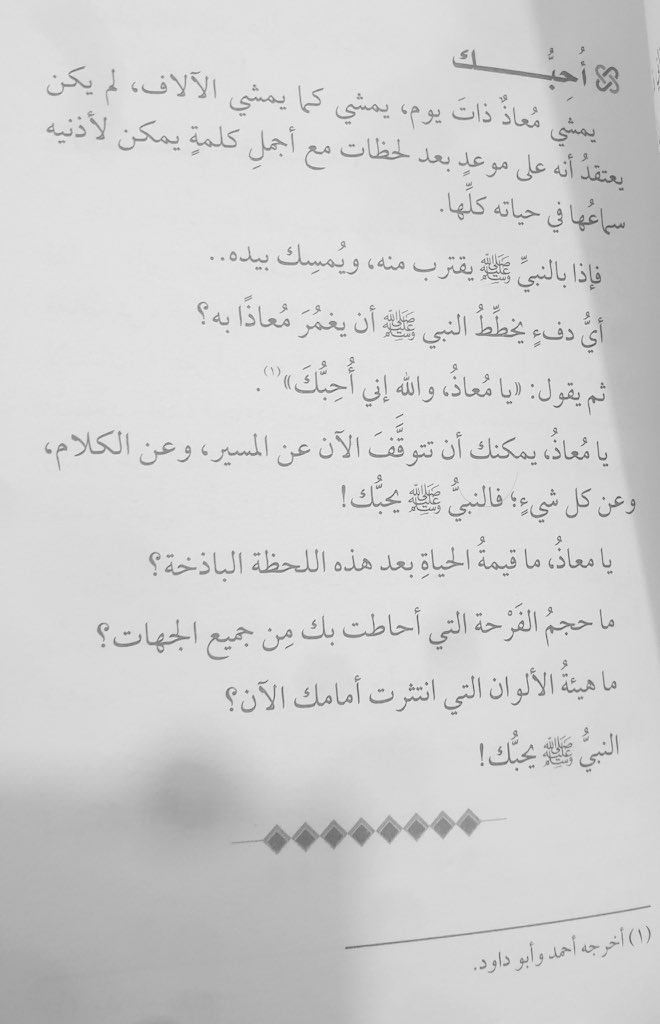 أُحِبُّـــــــك
يمشي مُعاذٌ ذاتَ يوم، يمشي كما يمشي الآلاف، لم يكن
يعتقدُ أنه على موعدٍ بعد لحظات مع أجملِ كلمةٍ يمكن لأذنيه
سماعُها في حياته كلِّها.
فإذا بالنبيِّ ﷺ يقترب منه، ويُمسِك بيده..
أيُّ دفءٍ يخطِّطُ النبي ﷺ أن يغمُرَ مُعاذًا به؟
ثم يقول: «يا مُعاذُ، والله إني أُحِبُّكَ»(١).
يا مُعاذُ، يمكنك أن تتوقَّفَ الآن عن المسير، وعن الكلام،
وعن كل شيءٍ؛ فالنبيُّ ﷺ يحبُّك!
يا معاذُ، ما قيمةُ الحياةِ بعد هذه اللحظة الباذخة؟
ما حجمُ الفَرْحة التي أحاطت بك مِن جميع الجهات؟
ما هيئةُ الألوان التي انتثرت أمامك الآن؟
النبيُّ ﷺ يحبُّك!
(١) أخرجه أحمد وأبو داود.